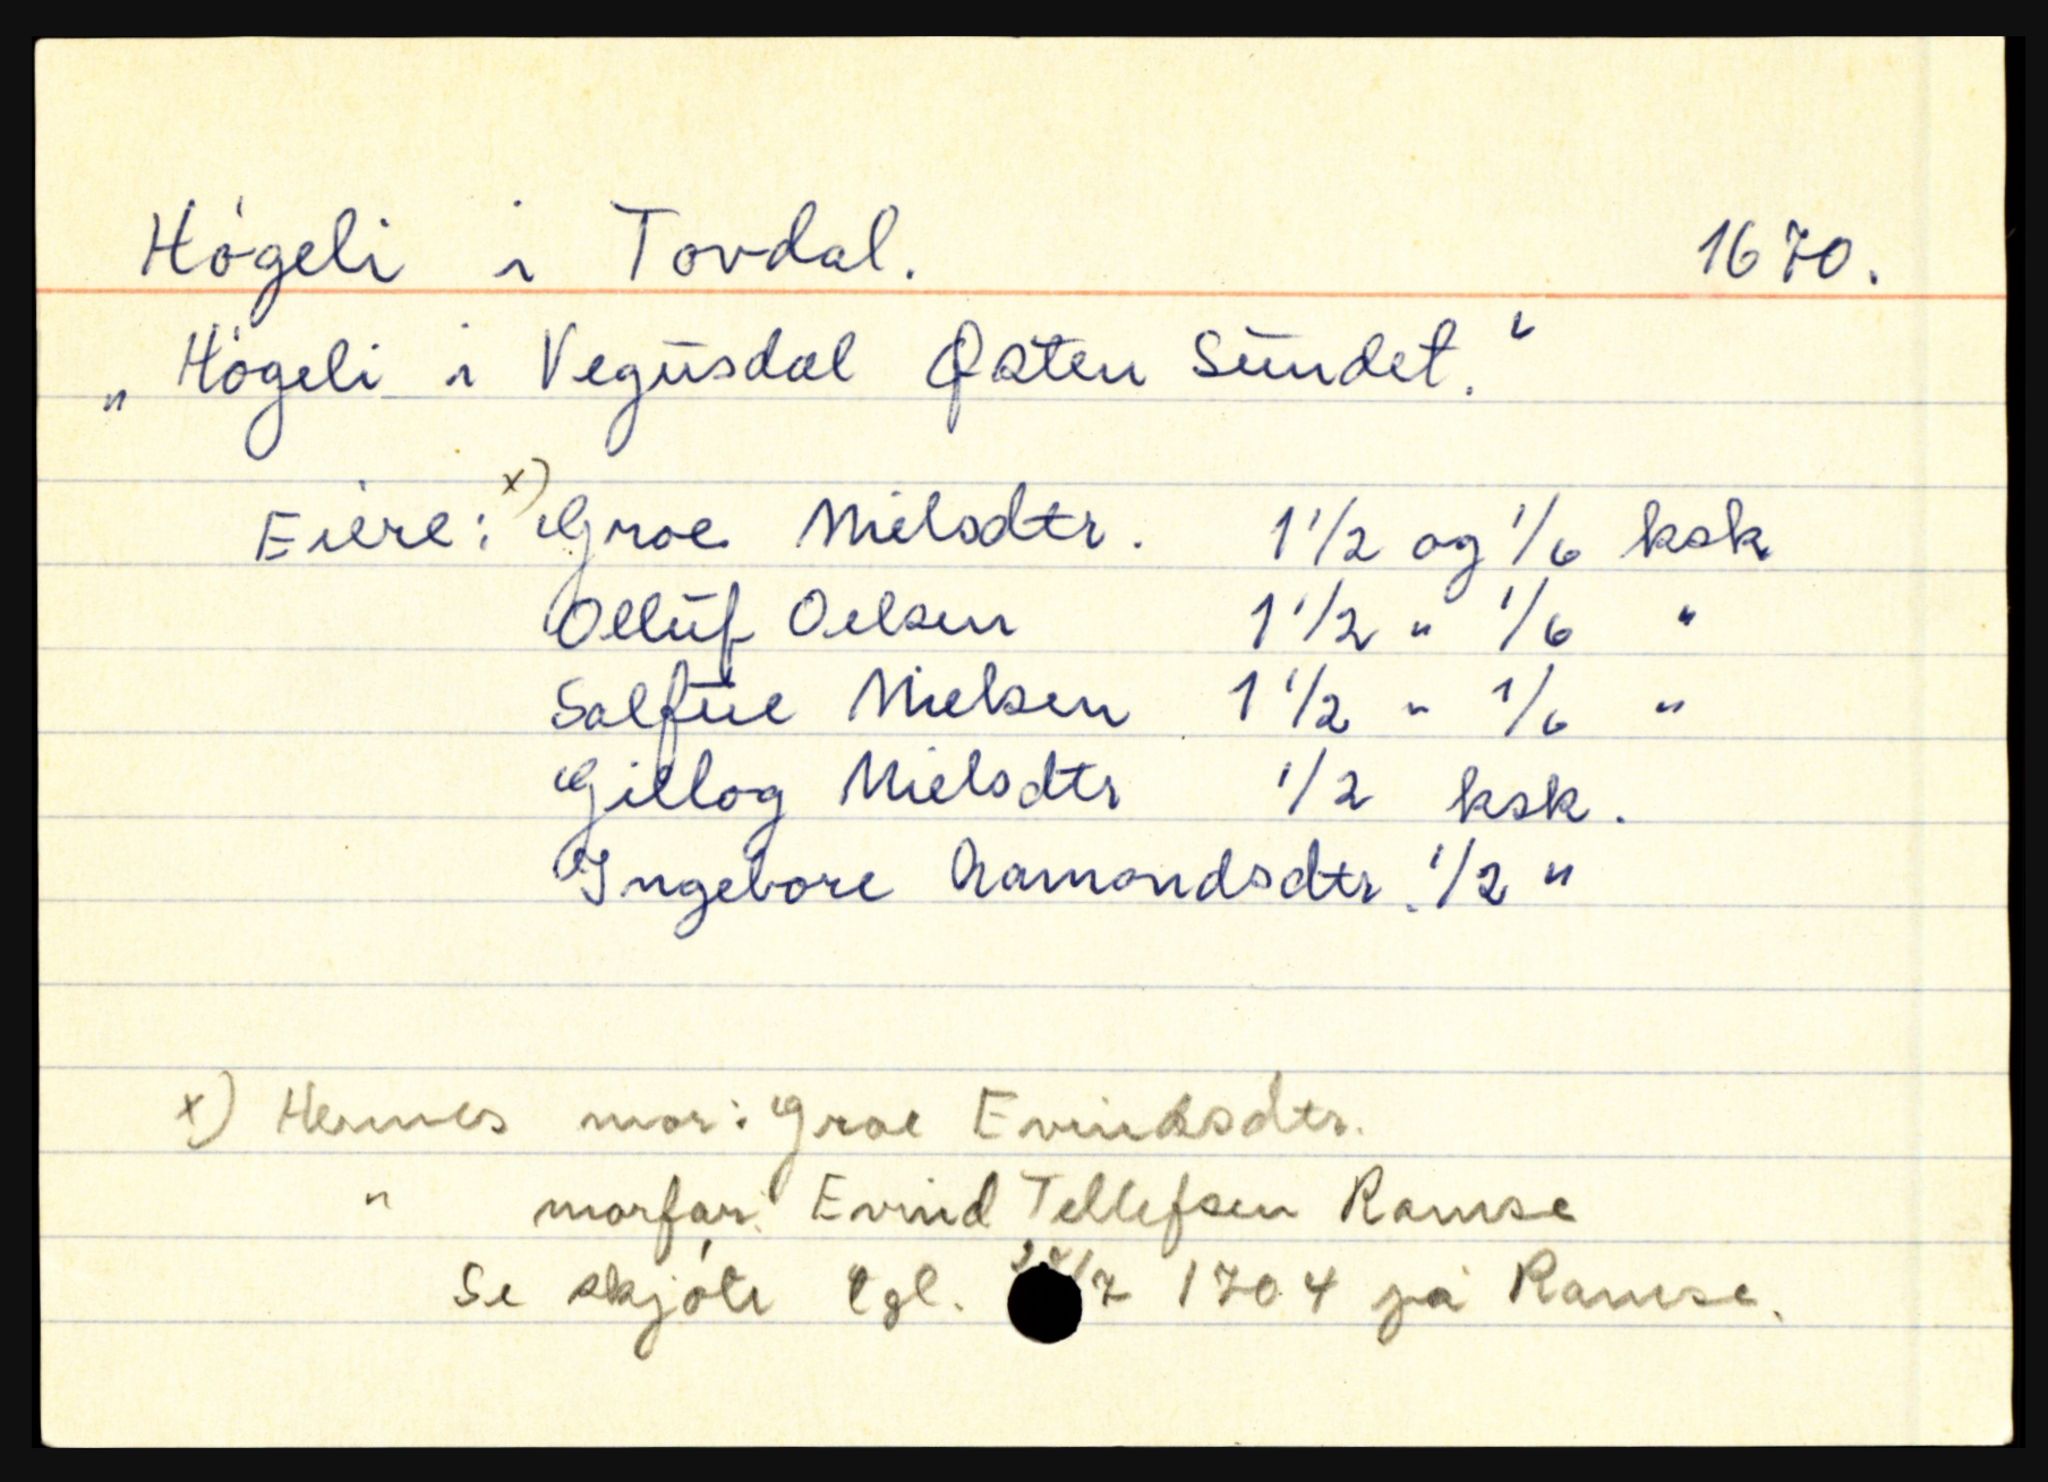 Högeli i Tovdal. 1670.
„Högeli i Vegusdal Østen Sundet.“
Eiere: x) Groe Nielsdtr. 1 1/2 og 1/6 ksk
Olluf Oelsen 1 1/2 " 1/6 "
Salfue Nielsen 1 1/2 " 1/6 "
Gillog Nielsdtr 1/2 ksk.
Ingebore Aamondsdtr. 1/2 "
x) Hennes mor: Groe Evindsdtr.
" morfar: Evind Tellefsen Ramse
Se skjöte tgl. /7 1704 på Ramse.